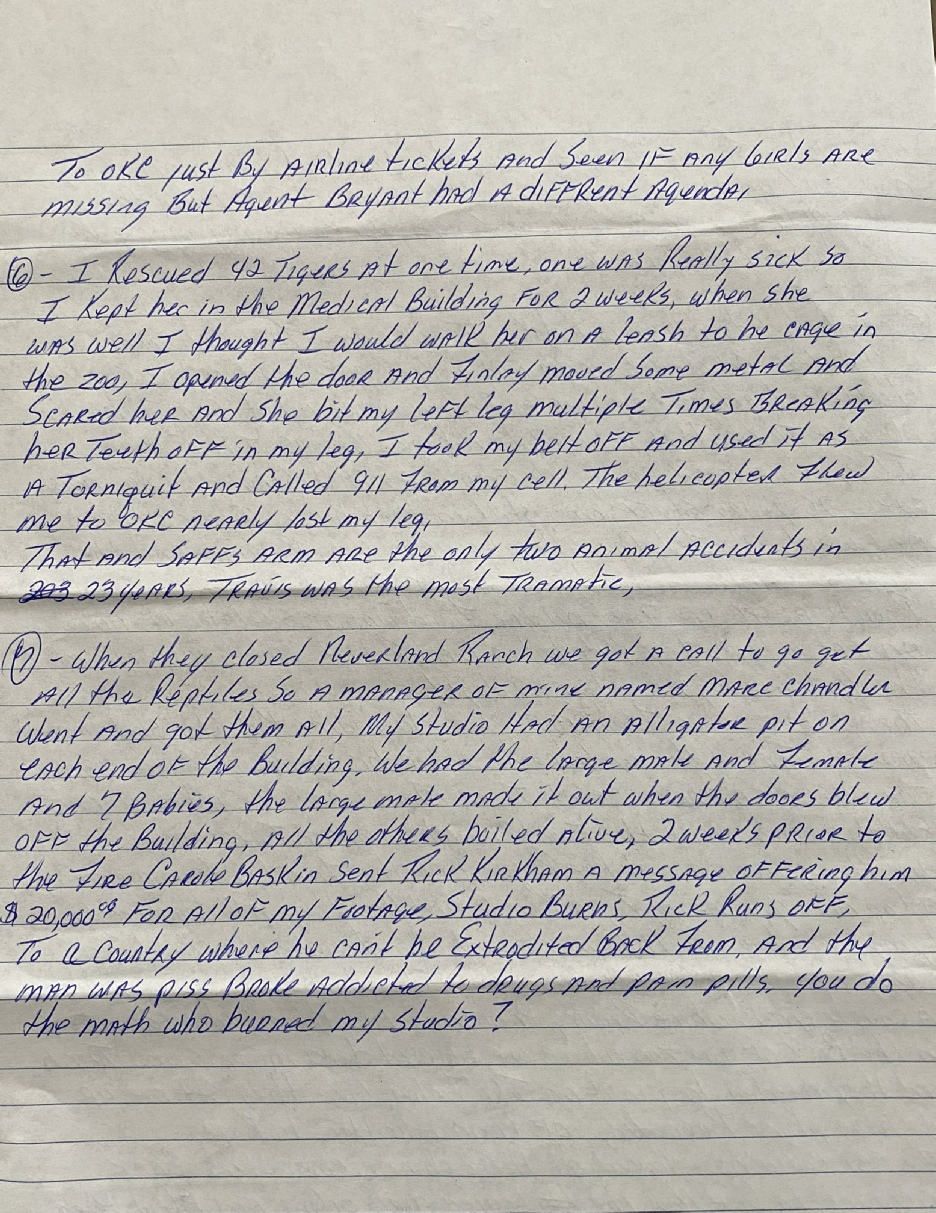 To OKC just By Airline tickets and Seen IF Any Girls Are
missing But Agent Bryant had A diFFRent Agenda,
⑥ - I Rescued 42 Tigers At one time, one was Really sick So
I Kept her in the Medical Building For 2 weeks, when she
was well I thought I would walk her on A leash to he cage in
the zoo, I opened the door And Finlay moved Some metal And
Scared her And She bit my left leg multiple Times Breaking
her Teeth oFF in my leg, I took my belt oFF and used it As
A Torniquit And Called 911 From my cell. The helicopter Flew
me to OKC nearly lost my leg,
That And SAFFs Arm Are the only two Animal Accidents in
203 23 years, Travis was the most Tramatic,
⑦ - When they closed Neverland Ranch we got A call to go get
All the Reptiles So A manager of mine named Marc Chandler
Went And got them All, My Studio Had An Alligator pit on
each end of the Building. We had the large male And Female
And 7 Babies, the large male made it out when the doors blew
OFF the Building, All the others boiled Alive, 2 weeks prior to
the Fire Carole Baskin Sent Rick Kirkham A message oFFering him
$ 20,000⁰⁰ For All of my Footage, Studio Burns, Rick Runs oFF,
To a Country where he can't be Extrodited Back From, And the
man was piss Broke Addicted to drugs And pain pills, you do
the math who burned my Studio?